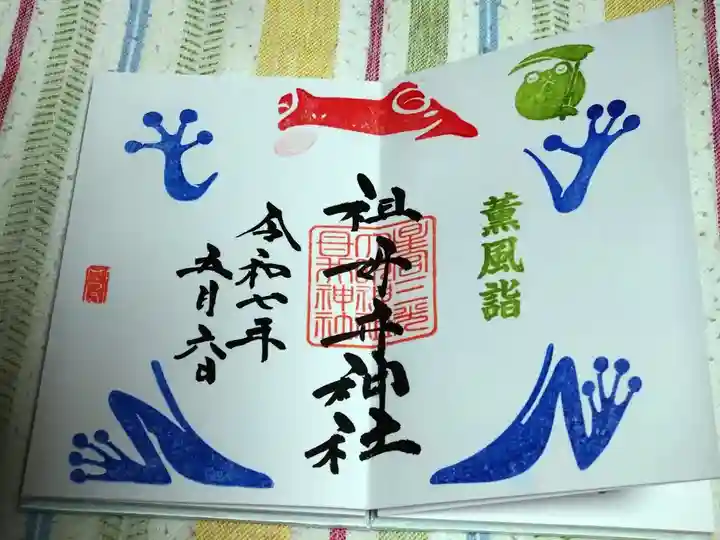 薫風詣
祖母井神社
令和七年
五月六日